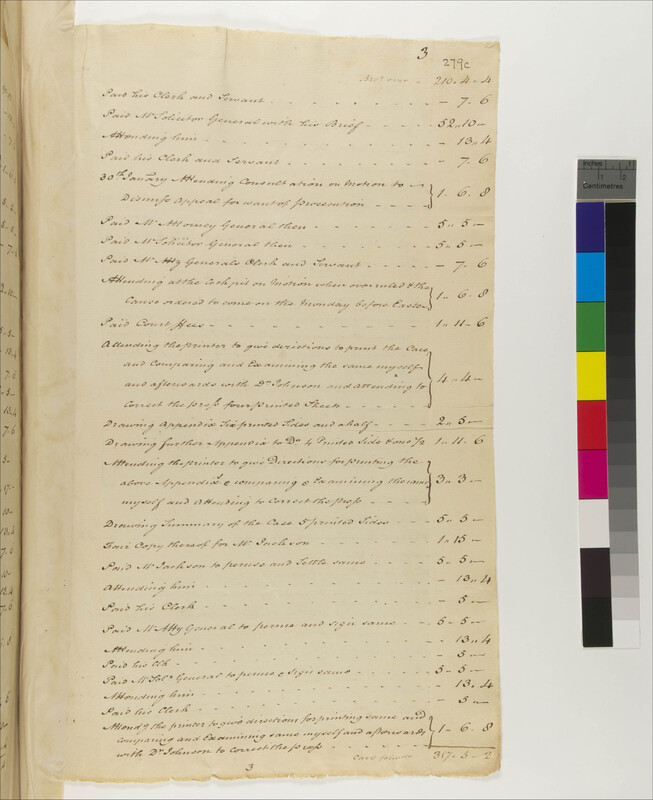 3
279c
Bro.t over - 210 - 4 - 4
Paid his Clerk and Servant - 7 - 6
Paid Mr Solicitor General with his Brief - 52 " 10 -
Attending him - 13 " 4
Paid his Clerk and Servant - 7 - 6
30th January Attending Consultation on Motion to
Dismiss Appeal for want of prosecution 1 - 6 - 8
Paid Mr Attorney General then 5 " 5 -
Paid Mr Solicitor General then 5 - 5 -
Paid Mr Atty Generals Clerk and Servant - 7 - 6
Attending at the Cockpit on Motion when overruled & the
Cause ordered to come on the Monday before Easter 1 " 6 - 8
Paid Court Fees 1 " 11 - 6
Attending the printer to give directions to print the Case
and Comparing and Examining the same myself
and afterwards with Dr Johnson and attending to
Correct the press four printed Sheets 4 " 4 -
Drawing Appendix Six printed Sides and a half 2 " 5 -
Drawing further Appendix to Do 4 Printed Side & one 1/2 1 " 11 - 6
Attending the printer to give Directions for printing the
above Appendix's & comparing & Examining the same
myself and Attending to Correct the press 3 " 3 -
Drawing Summary of the Case 5 printed Sides 5 " 5 -
Fair Copy thereof for Mr Jackson 1 " 15 -
Paid Mr Jackson to peruse and Settle same 5 - 5 -
Attending him - 13 " 4
Paid his Clerk - 5 -
Paid Mr Atty General to peruse and sign same 5 - 5 -
Attending him - 13 " 4
Paid his Clk - 5 -
Paid Mr Solr General to peruse & sign same 5 - 5 -
Attending him - 13 " 4
Paid his Clerk - 5 -
Attendg the printer to give directions for printing same and
Comparing and Examining same myself and afterwards
with Dr Johnson to Correct the press 1 - 6 - 8
Card forward 317 - 5 - 2
3
Inches
1
2
Centimetres